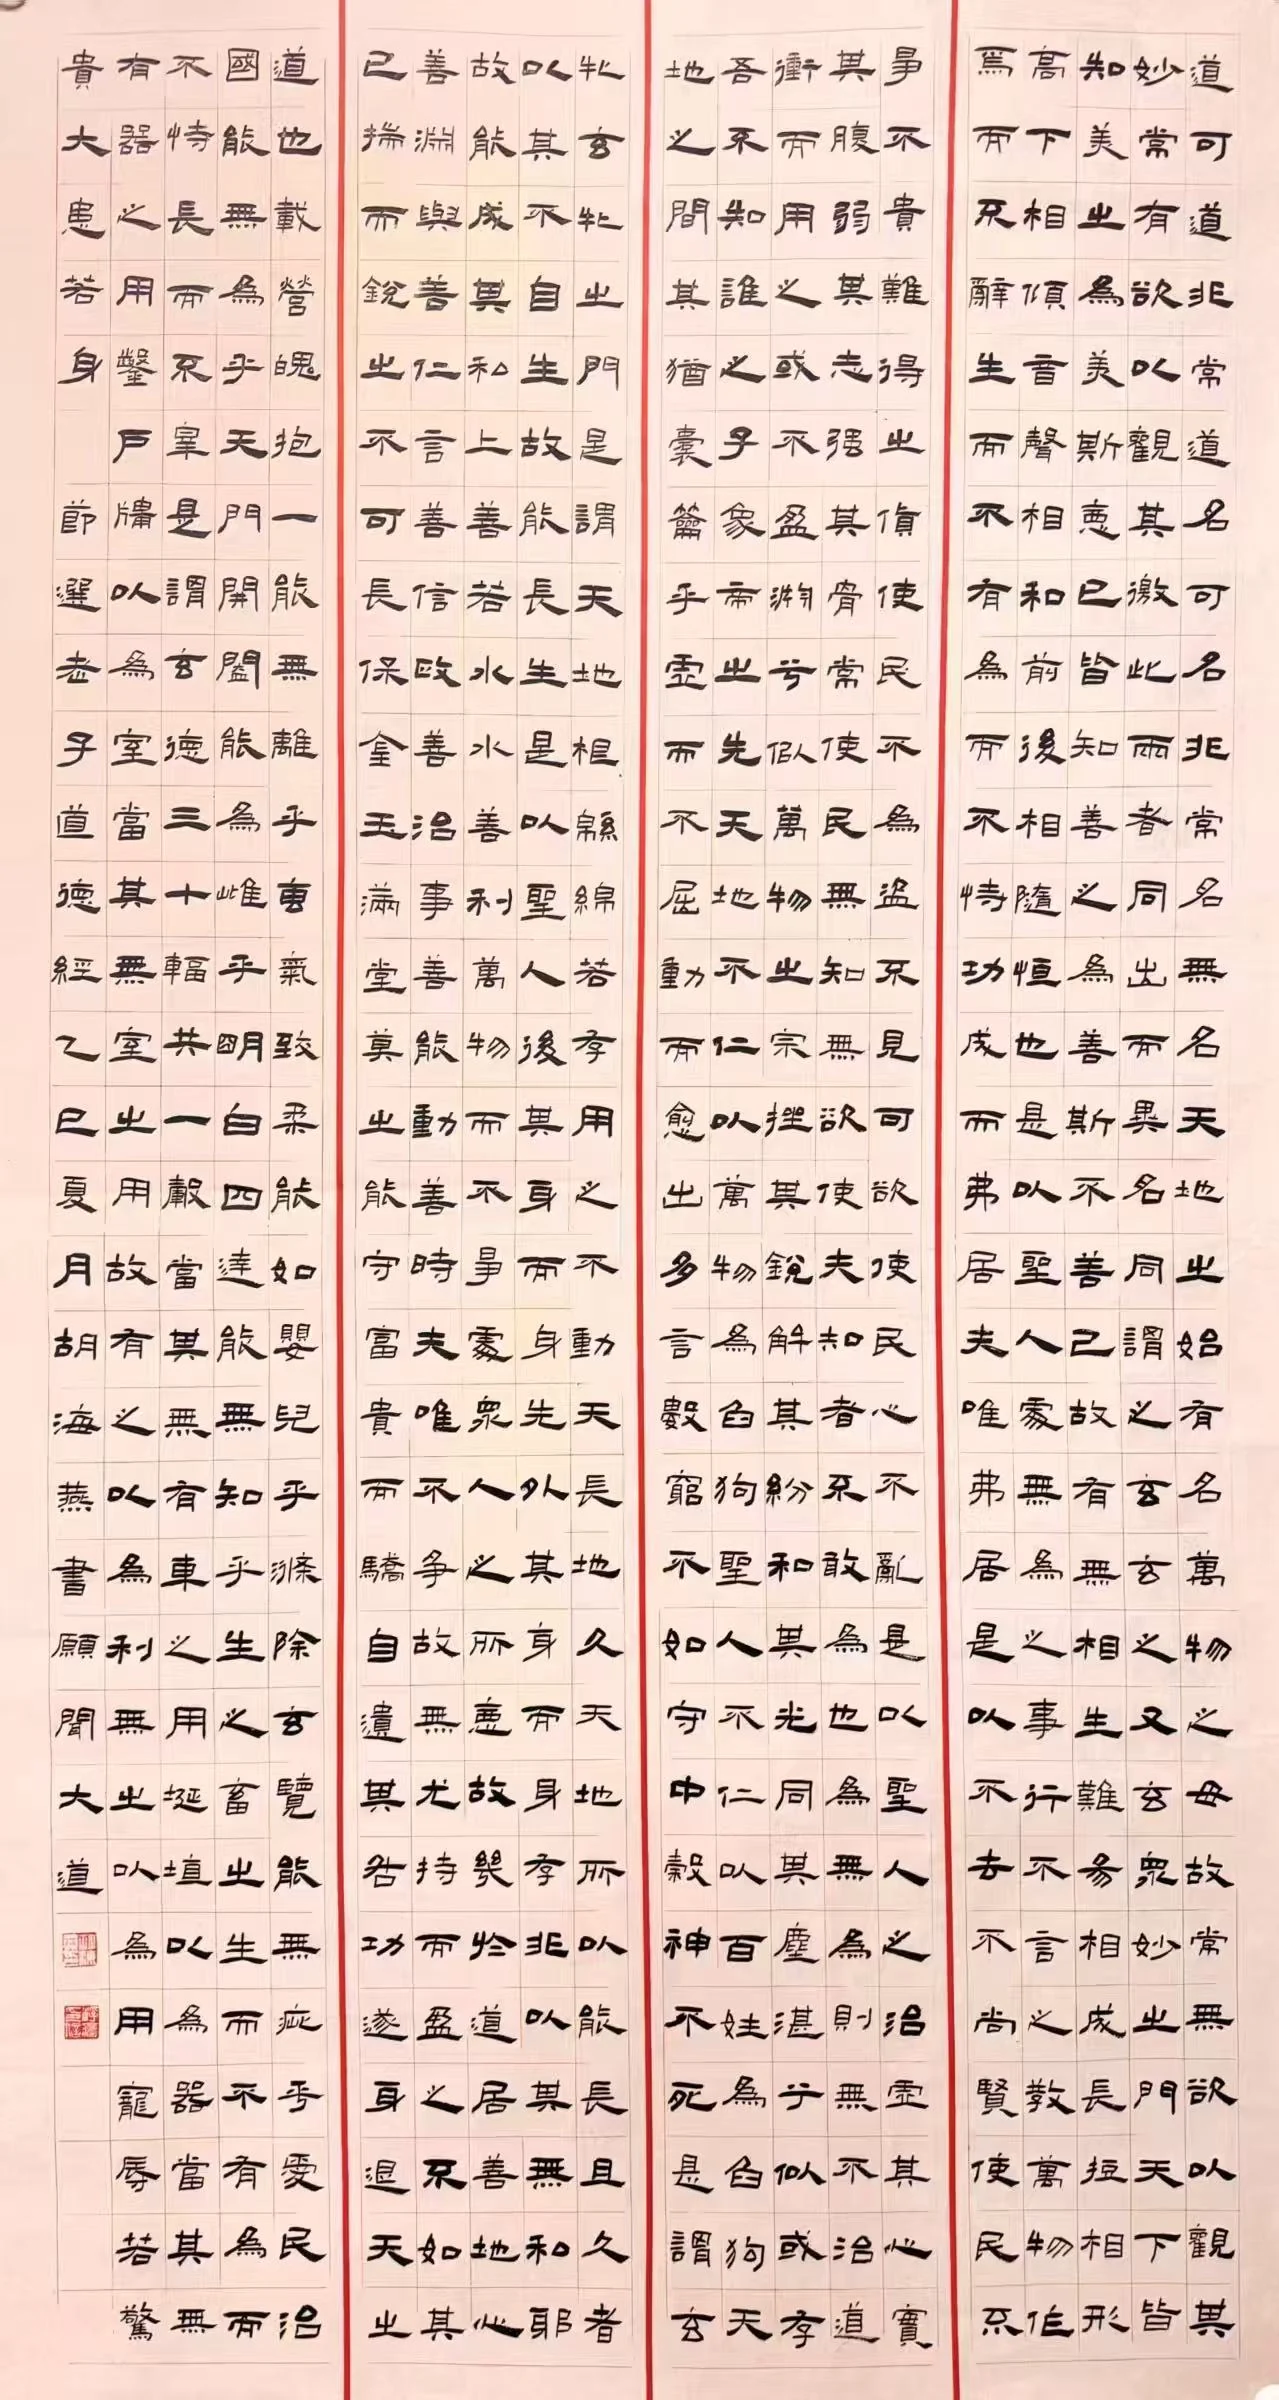 道可道非常道名可名非常名無名天地之始有名萬物之母故常無欲以觀其
妙常有欲以觀其徼此兩者同出而異名同謂之玄玄之又玄眾妙之門天下皆
知美之為美斯惡已皆知善之為善斯不善已故有無相生難易相成長短相形
高下相傾音聲相和前後相隨恒也是以聖人處無為之事行不言之教萬物作
焉而不辭生而不有為而不恃功成而弗居夫唯弗居是以不去不尚賢使民不
爭不貴難得之貨使民不為盜不見可欲使民心不亂是以聖人之治虛其心實
其腹弱其志强其骨常使民無知無欲使夫知者不敢為也為無為則無不治道
衝而用之或不盈淵兮似萬物之宗挫其銳解其紛和其光同其塵湛兮似或存
吾不知誰之子象帝之先天地不仁以萬物為芻狗聖人不仁以百姓為芻狗天
地之間其猶橐籥乎虛而不屈動而愈出多言數窮不如守中穀神不死是謂玄
牝玄牝之門是謂天地根緜綿若存用之不動天長地久天地所以能長且久者
以其不自生故能長生是以聖人後其身而身先外其身而身存非以其無私耶
故能成其私上善若水水善利萬物而不爭處眾人之所惡故幾於道居善地心
善淵與善仁言善信政善治事善能動善時夫唯不爭故無尤持而盈之不如其
已揣而銳之不可長保金玉滿堂莫之能守富貴而驕自遺其咎功遂身退天之
道也載營魄抱一能無離乎專氣致柔能如嬰兒乎滌除玄覽能無疵乎愛民治
國能無為乎天門開闔能為雌乎明白四達能無知乎生之畜之生而不有為而
不恃長而不宰是謂玄德三十輻共一轂當其無有車之用埏埴以為器當其無
有器之用鑿戶牖以為室當其無室之用故有之以為利無之以為用寵辱若驚
貴大患若身 節選老子道德經乙巳夏月胡海燕書願聞大道